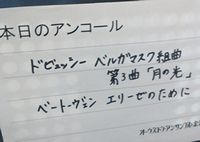 本日のアンコール
ドビュッシー ベルガマスク組曲
第3曲「月の光」
ベートーヴェン エリーゼのために
オーケストラアンサンブル金